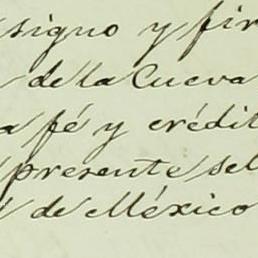 signo y fir
de la Cueva
a fé y crédit
presente sel
de México